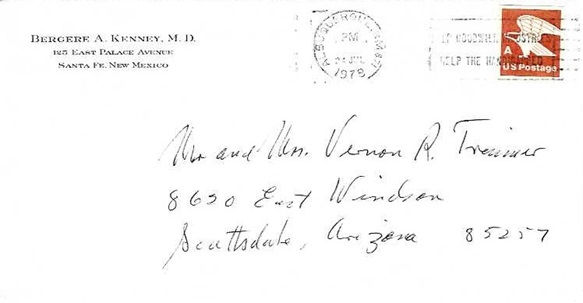 BERGERE A. KENNEY, M. D.
125 EAST PALACE AVENUE
SANTA FE, NEW MEXICO
ALBUQUERQUE
PM
24 JUL
1978
HELP THE
A
US Postage
Mr. and Mrs. Vernon R. Trimmer
8630 East Windsor
Scottsdale, Arizona 85257